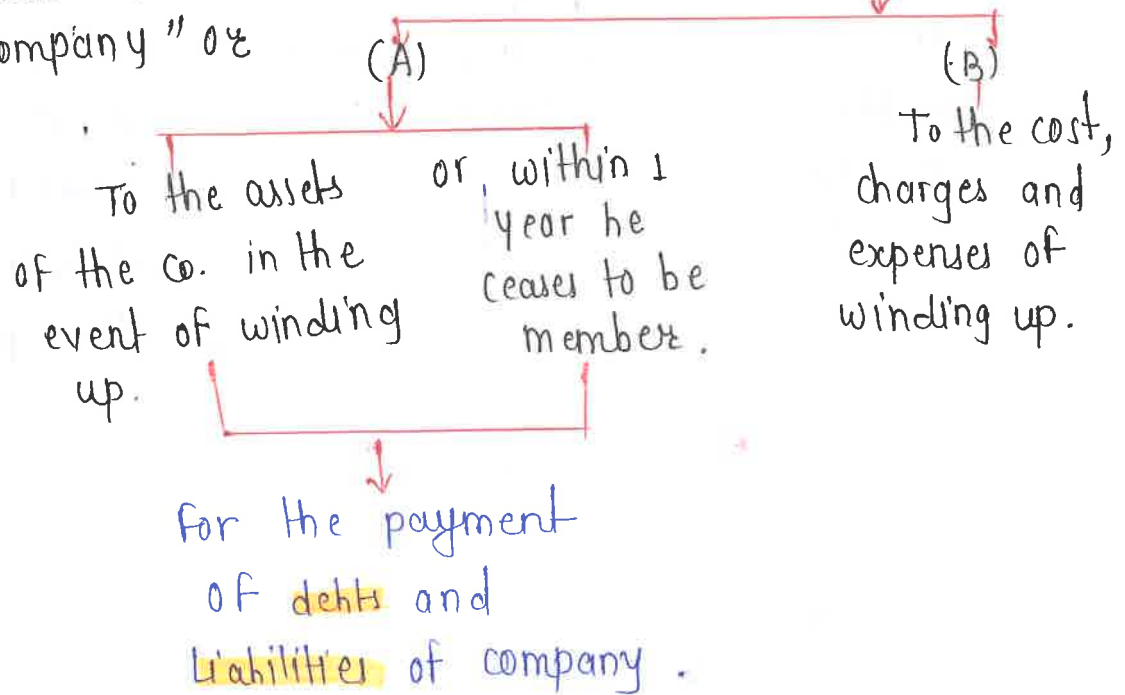 ompany" or
(A)
(B)
To the assets
of the co. in the
event of winding
up.
or, within 1
year he
ceases to be
member.
To the cost,
charges and
expenses of
winding up.
for the payment
of debts and
Liabilities of company.